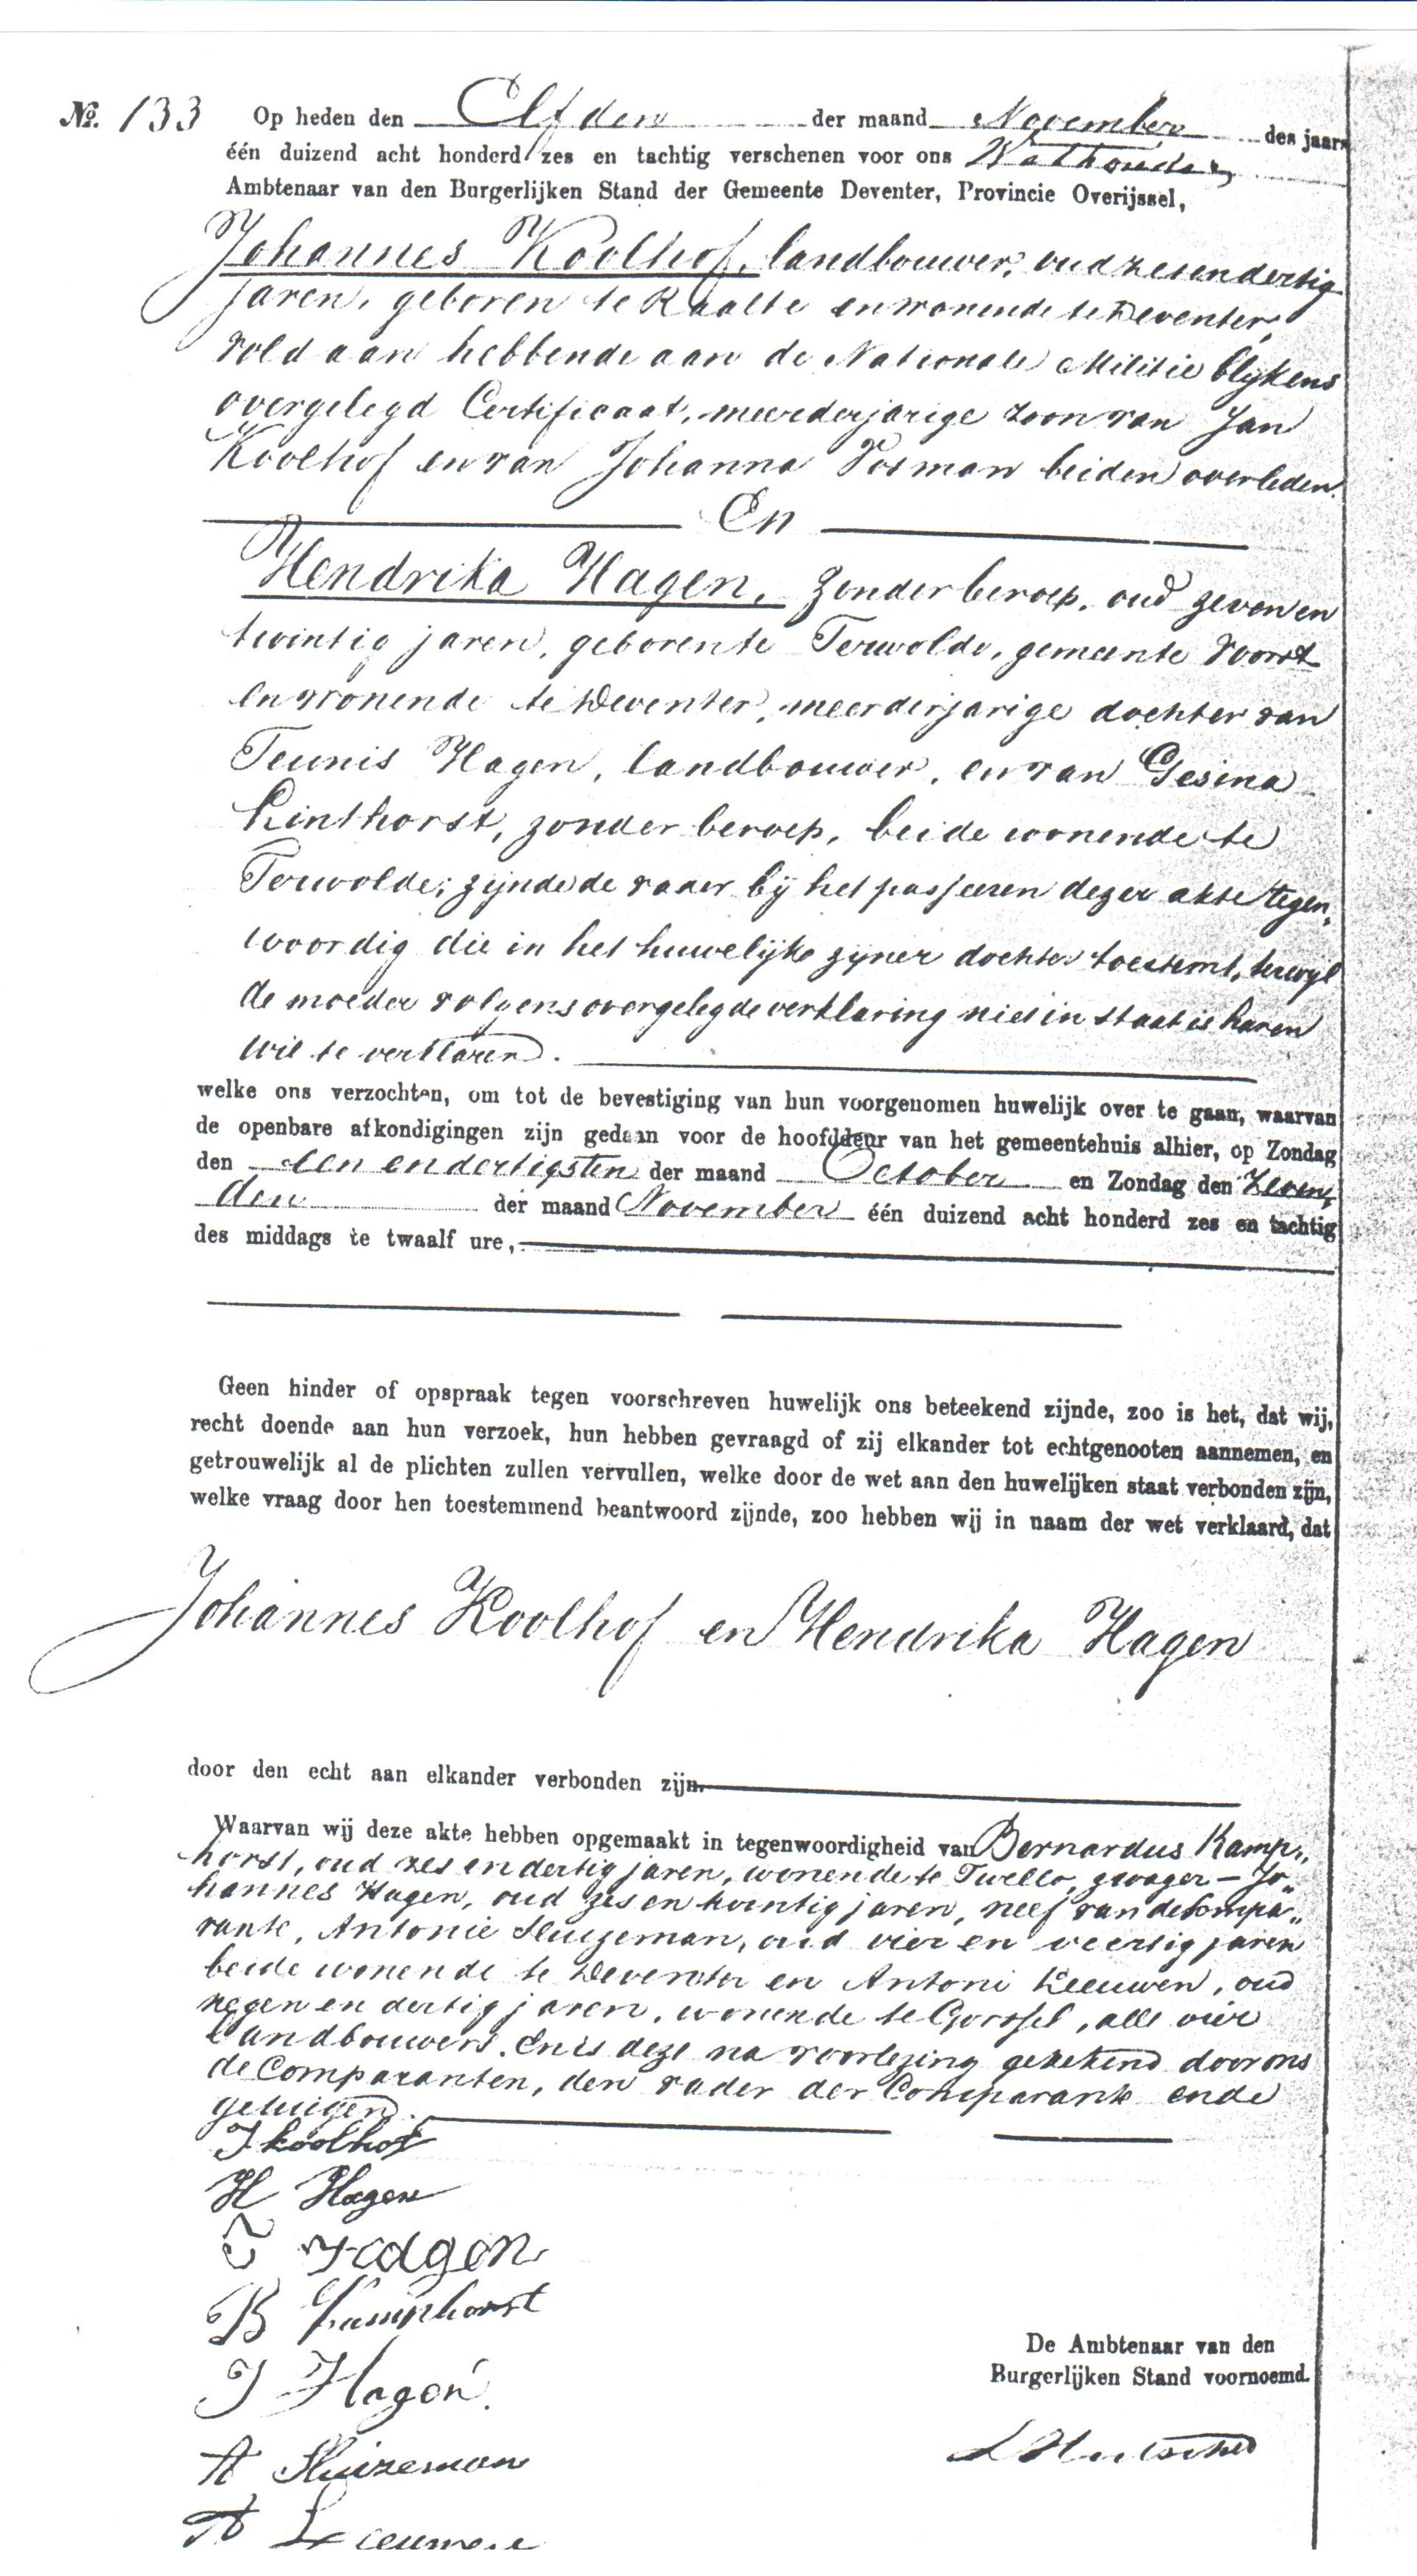 No. 133 Op heden den Elfden der maand November des jaars
één duizend acht honderd zes en tachtig verschenen voor ons Wethouder,
Ambtenaar van den Burgerlijken Stand der Gemeente Deventer, Provincie Overijssel,
Johannes Koolhof, landbouwer, oud zesendertig
jaren, geboren te Raalte en wonende te Deventer,
voldaan hebbende aan de Nationale Militie blijkens
overgelegd Certificaat, meerderjarige zoon van Jan
Koolhof en van Johanna Posman beiden overleden.
En
Hendrika Hagen, zonder beroep, oud zeven en
twintig jaren, geboren te Terwolde, gemeente Voorst
en wonende te Deventer, meerderjarige dochter van
Teunis Hagen, landbouwer, en van Gesina
Linthorst, zonder beroep, beide wonende te
Terwolde; zijnde de vader bij het passeeren dezer akte tegen„
woordig die in het huwelijk zijner dochter toestemt, terwijl
de moeder volgens overgelegde verklaring niet in staat is haren
wil te verklaren.
welke ons verzochten, om tot de bevestiging van hun voorgenomen huwelijk over te gaan, waarvan
de openbare afkondigingen zijn gedaan voor de hoofddeur van het gemeentehuis alhier, op Zondag
den een en dertigsten der maand October en Zondag den Zeven„
den der maand November één duizend acht honderd zes en tachtig
des middags te twaalf ure,
Geen hinder of opspraak tegen voorschreven huwelijk ons beteekend zijnde, zoo is het, dat wij,
recht doende aan hun verzoek, hun hebben gevraagd of zij elkander tot echtgenooten aannemen, en
getrouwelijk al de plichten zullen vervullen, welke door de wet aan den huwelijken staat verbonden zijn,
welke vraag door hen toestemmend beantwoord zijnde, zoo hebben wij in naam der wet verklaard, dat
Johannes Koolhof en Hendrika Hagen
door den echt aan elkander verbonden zijn.
Waarvan wij deze akte hebben opgemaakt in tegenwoordigheid van Bernardus Kamp„
horst, oud zes en dertig jaren, wonende te Twello, zwager – Jo„
hannes Hagen, oud zes en twintig jaren, neef van de Compa„
rante, Antonie Sluizeman, oud vier en veertig jaren
beide wonende te Deventer en Antoni Leeuwen, oud
negen en dertig jaren, wonende te Gorssel, alle vier
Landbouwers. En is deze na voorlezing getekend door ons
de Comparanten, den vader der Comparante en de
getuigen.
J Koolhof
H Hagen
T Hagen
B Kamphorst
J Hagen
De Ambtenaar van den
Burgerlijken Stand voornoemd.
A Sluizeman
A Leeuwen